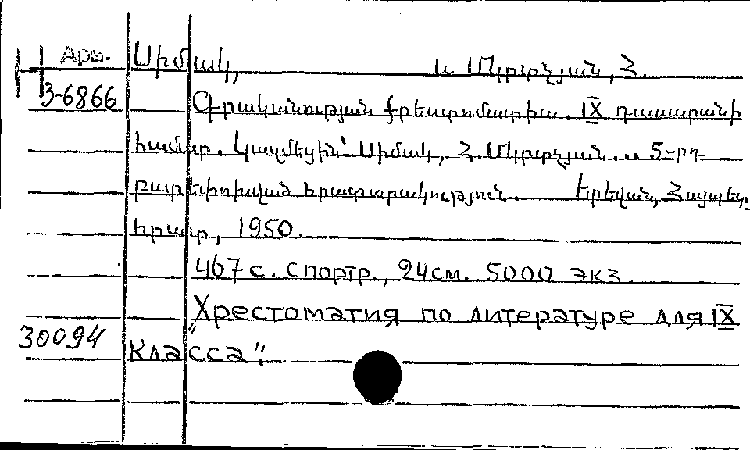 Арм. Սիմակ, և Մկրտչյան, Հ.
3-6866 Գրականության քրեստոմատիա. IX դասարանի
համար. Կազմեցին՝ Սիմակ, Հ. Մկրտչյան. 5-րդ
բարեփոխված հրատարակություն. Երևան, Հայպետ-
հրատ, 1950.
467 с. с портр., 24см. 5000 экз.
"Хрестоматия по литературе для IX
30094 класса".